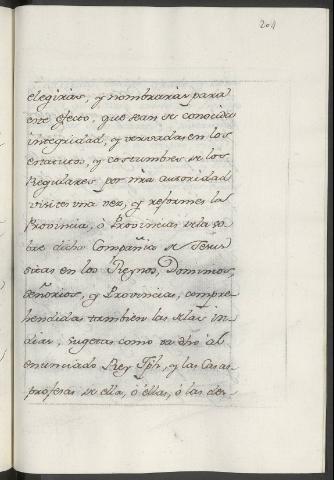 204
elegirás, y nombrarás para
este efecto, que sean de conocida
integridad, y versadas en los
estatutos, y costumbres de los
Regulares por nrâ autoridad
visites una vez, y reformes la
Provincia, ò Provincias de la so
bre dicha Compañia de Jesus
sitas en los Reynos, Dominios,
Señorios, y Provincias, compre
hendidas tambien las de las in
dias, sugetas como va dho al
enunciado Rey Jph, y las Casas
profesas de ella, ó éllas, ò las der